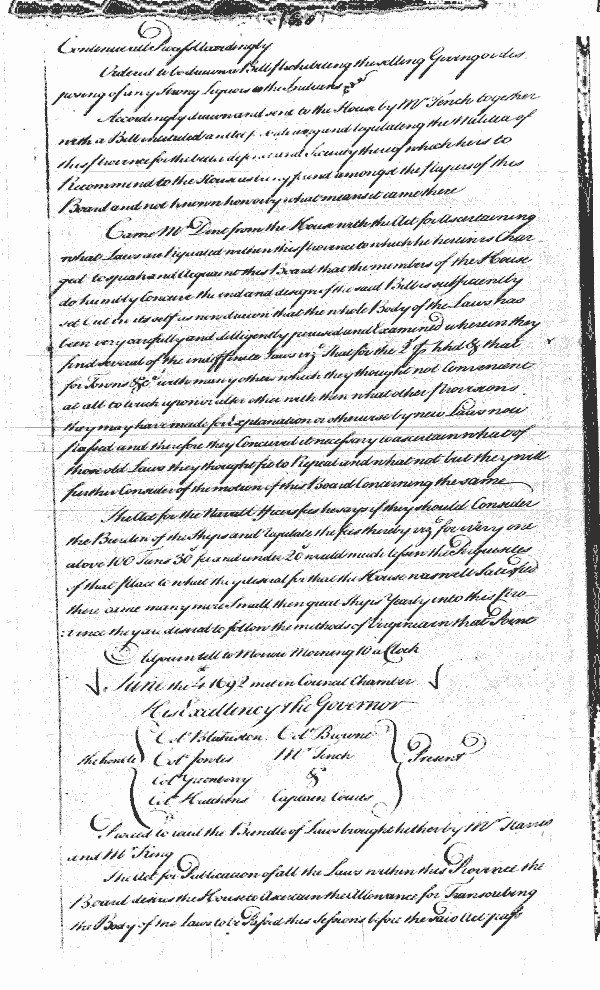 Condemn all Proceed accordingly
Ordered to be drawn a Bill prohibiting the selling Giving or dis
posing of any Strong Liquors to the Indians
Accordingly drawn and sent to the House by Mr Tench together
with a Bill entituled an Act for ordering and regulating the Militia of
this Province for the better defence and Security thereof which he is to
Recommend to the House as being found amongst the Papers of this
Board and not known how or by what means it came there
Came Mr Dent from the House with the Act for Ascertaining
what Laws are Repealed within this Province to which he herein is Char-
ged to speak and Acquaint this Board that the members of the House
do humbly Conceive the end and design of the said Bill is sufficiently
set out in its self as now drawn that the whole Body of the Laws has
been very carefully and dilligently perused and Examined wherein they
find several of the indiffinite Laws vizt That for the 2d p hhd & that
for Towns &c with many others which they thought not Convenient
at all to touch upon or alter other with then what other Provisions
they may have made for Explanation or otherwise by new Laws now
Passed and therefore they Conceived it necessary to ascertain what of
those old Laws they thought fit to Repeal and what not but they will
further Consider of the motion of this Board Concerning the same
The Act for the Navall Officers fees he says if they should Consider
the Burden of the Ships and Regulate the fees thereby vizt for every one
above 100 Tuns 30s fee and under 20s would much lessen the Perquisites
of that Place to what they desired for that the House was well Satisfied
there came many more Small then great Ships Yearly into this Pro-
vince they are desired to follow the methods of Virginia in that Point
Adjourn till to Morrow Morning 10 a Clock
June the 4th 1692 met in Council Chamber
His Excellency the Governor
Col Blakiston Col Browne
the honble Col Jowles Mr Tench Present
Col Greenberry &
Col Hutchins Captain Courts
Proceed to read the Bundle of Laws brought hither by Mr Harris
and Mr King
The Act for Publication of all the Laws within this Province the
Board desires the House to Ascertain the Allowance for Transcribing
the Body of the Laws to be Passed this Sessions before the said Act pass